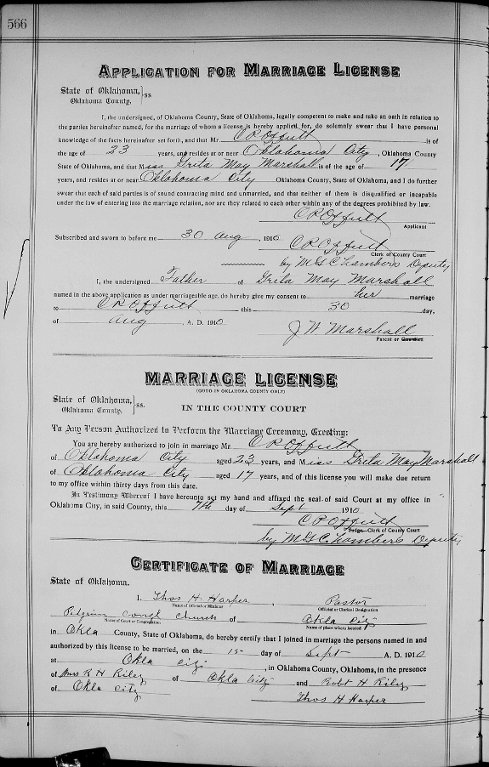 566
APPLICATION FOR MARRIAGE LICENSE
State of Oklahoma, }ss
Oklahoma County.
I, the undersigned, of Oklahoma County, State of Oklahoma, legally competent to make and take an oath in relation to
the parties hereinafter named, for the marriage of whom a license is hereby applied for, do solemnly swear that I have personal
knowledge of the facts hereinafter set forth, and that Mr C R Offutt is of
the age of 23 years, and resides at or near Oklahoma City, Oklahoma County
State of Oklahoma, and that Miss Grita May Marshall is of the age of 17
years, and resides at or near Oklahoma City Oklahoma County, State of Oklahoma, and I do further
swear that each of said parties is of sound contracting mind and unmarried, and that neither of them is disqualified or incapable
under the law of entering into the marriage relation, nor are they related to each other within any of the degrees prohibited by law.
C R Offutt
Applicant
Subscribed and sworn to before me 30 Aug 1910. C R Offutt
Clerk of County Court
by M G Chambers Deputy
I, the undersigned Father of Grita May Marshall
named in the above application as under marriageable age, do hereby give my consent to her marriage
to C R Offutt this 30 day,
of Aug A. D. 1910
J W Marshall
Parent or Guardian
MARRIAGE LICENSE
(GOOD IN OKLAHOMA COUNTY ONLY)
State of Oklahoma, }ss.
Oklahoma County,
IN THE COUNTY COURT
To Any Person Authorized to Perform the Marriage Ceremony, Greeting:
You are hereby authorized to join in marriage Mr C R Offutt
of Oklahoma City aged 23 years, and Miss Grita May Marshall
of Oklahoma City aged 17 years, and of this license you will make due return
to my office within thirty days from this date.
In Testimony Whereof I have hereunto set my hand and affixed the seal of said Court at my office in
Oklahoma City, in said County, this 7th day of Sept 1910
C R Offutt
Judge Clerk of County Court
by M G Chambers Deputy
CERTIFICATE OF MARRIAGE
State of Oklahoma.
I, Thos H Harper, Pastor
Name of Official or Minister Official or Clerical Designation
Pilgrim Congl Church of Okla City
Name of Court or Congregation Name of place where located
in Okla County, State of Oklahoma, do hereby certify that I joined in marriage the persons named in and
authorized by this license to be married, on the day of Sept A. D. 1910
at Okla City, in Oklahoma County, Oklahoma, in the presence
of Mrs R H Riley of Okla City and Robt H Riley
of Okla City
Thos H Harper